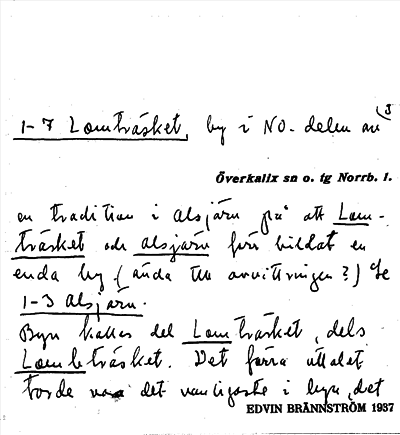 1-7 Lomträsket, by i NO-delen av
Överkalix sn o. tg Norrb. l.
en tradition i Alsjärv på att Lom-
träsket och Alsjärv förr bildat en
enda by (ända till avvittringen?) Se
1-3 Alsjärv.
Byn kallas del Lomträsket, dels
Lombträsket. Det förra uttalet
torde vara det vanligaste i byn, det
EDVIN BRÄNNSTRÖM 1937